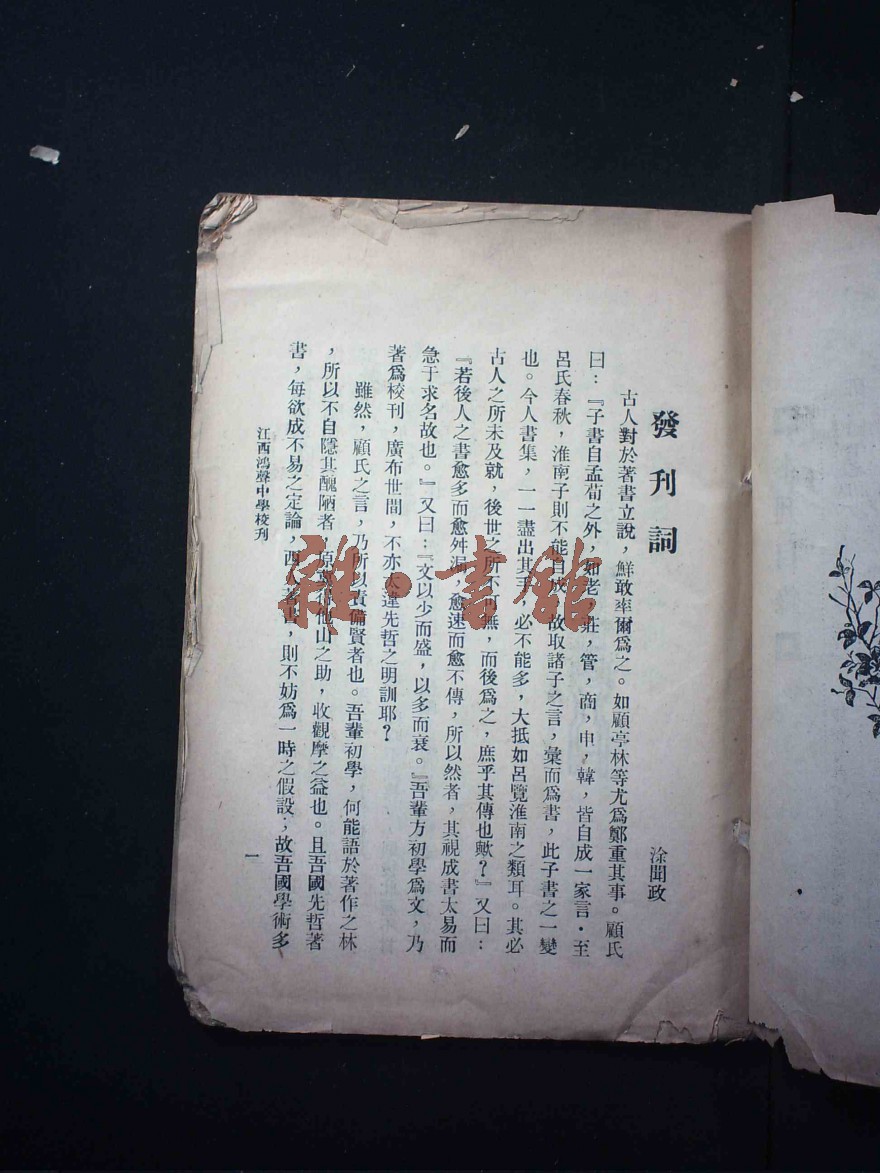 發刊詞
涂聞政
古人對於著書立說，鮮敢率爾爲之。如顧亭林等尤爲鄭重其事。顧氏
曰：『子書自孟荀之外，如老，莊，管，商，申，韓，皆自成一家言．至
呂氏春秋，淮南子則不能自成，故取諸子之言，彙而爲書，此子書之一變
也。今人書集，一一盡出其手，必不能多，大抵如呂覽淮南之類耳。其必
古人之所未及就，後世之所不可無，而後爲之，庶乎其傳也歟？』又曰：
『若後人之書愈多而愈舛漏，愈速而愈不傳，所以然者，其視成書太易而
急于求名故也。』又曰：『文以少而盛，以多而衰。』吾輩方初學爲文，乃
著爲校刊，廣布世間，不亦太違先哲之明訓耶？
雖然，顧氏之言，乃所以責備賢者也。吾輩初學，何能語於著作之林
，所以不自隱其醜陋者，原冀得他山之助，收觀摩之益也。且吾國先哲著
書，每欲成不易之定論，西人著書，則不妨爲一時之假設；故吾國學術多
江西鴻聲中學校刊
一
雜·書館